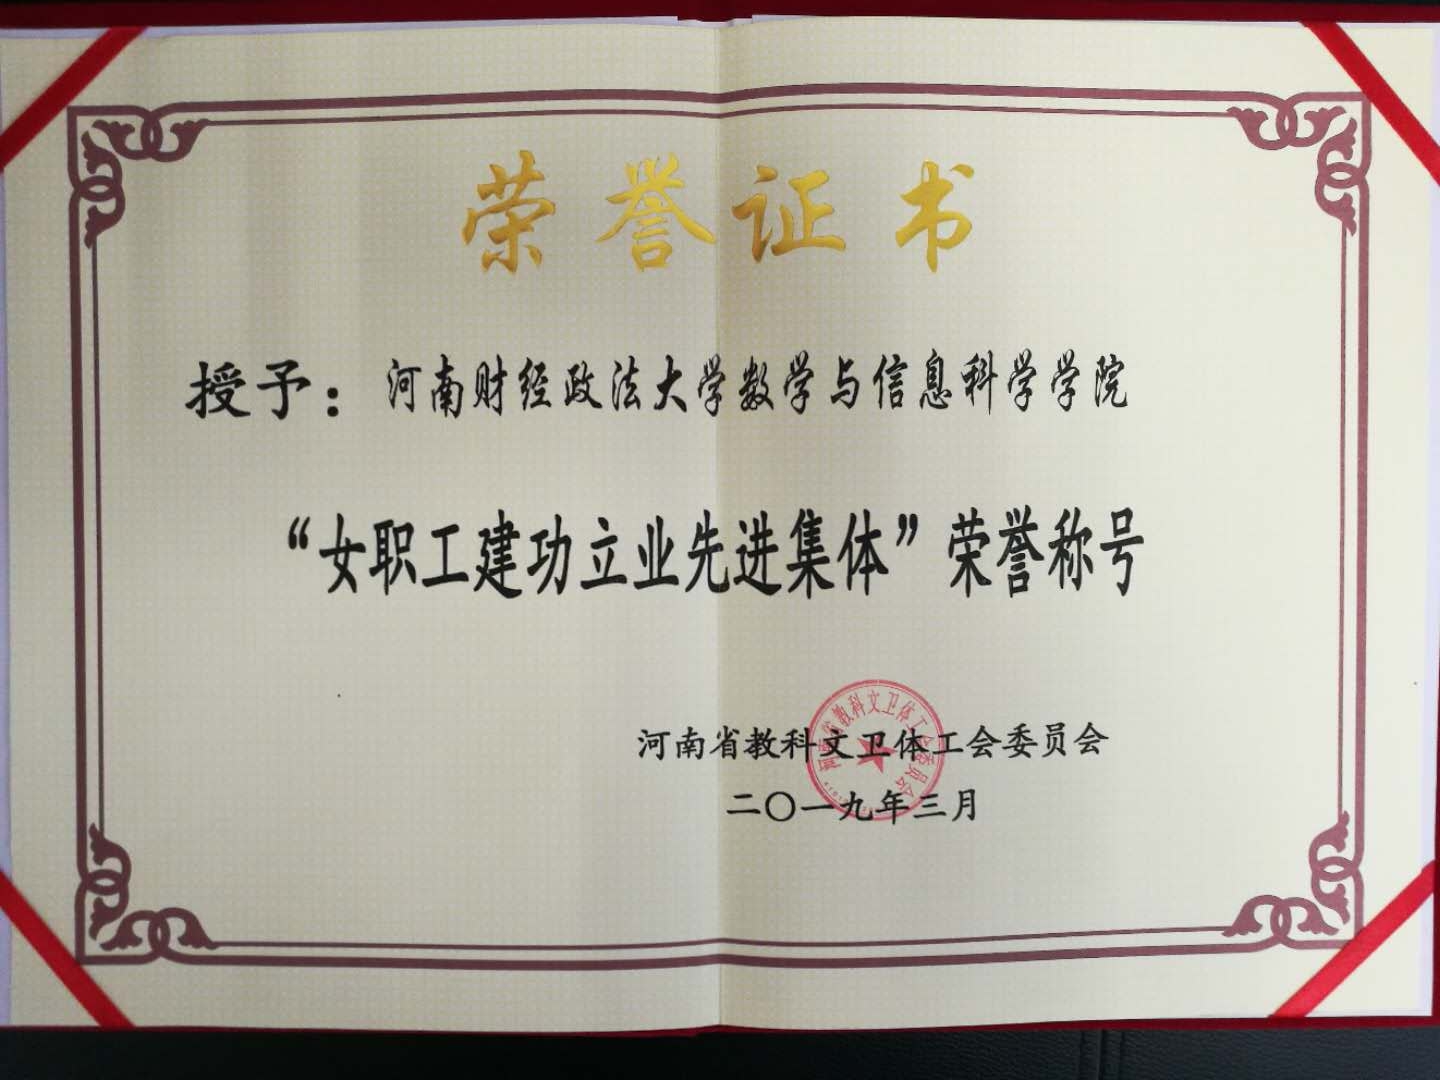 荣誉证书
授予：河南财经政法大学数学与信息科学学院
“女职工建功立业先进集体”荣誉称号
河南省教科文卫体工会委员会
二〇一九年三月
河南省教科文卫体工会委员会